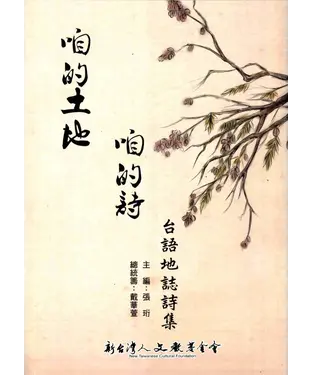 咱的土地
咱的詩
台語地誌詩集
主編：張珩
總統籌：戴華萱
新台灣人文教基金會
New Taiwanese Cultural Foundation